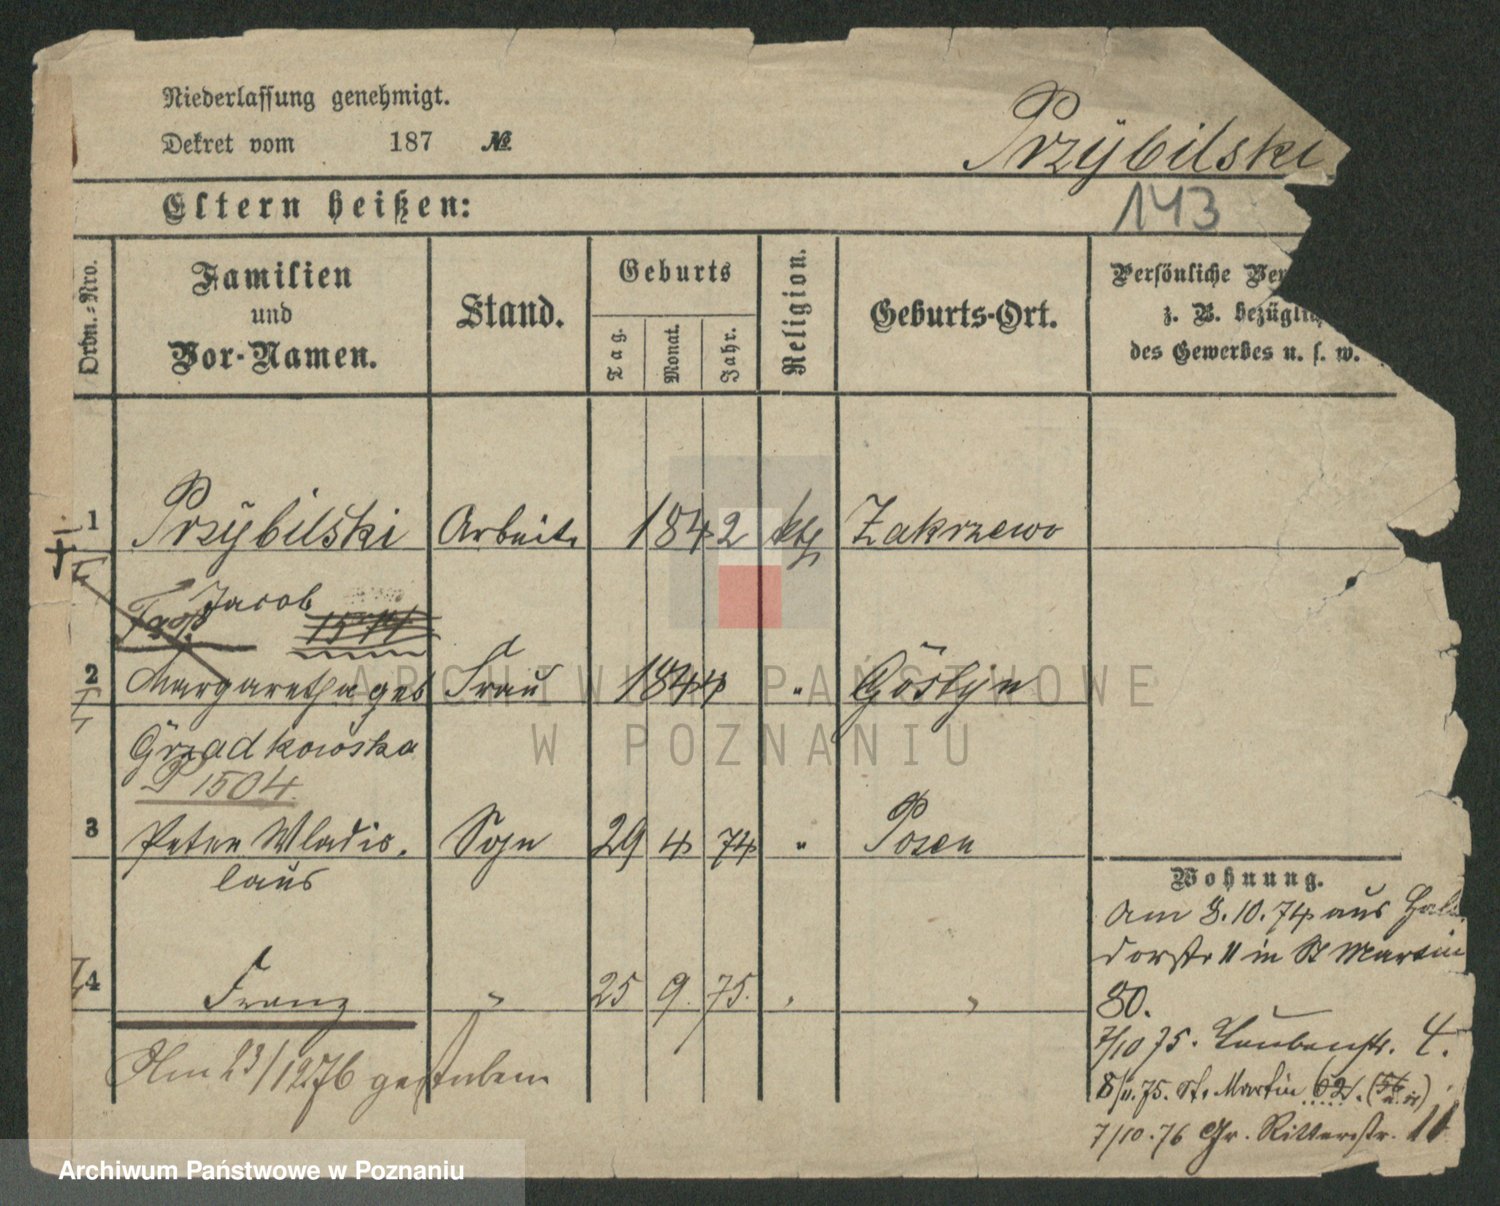 Niederlassung genehmigt.
Dekret vom 187 №
Przÿbilski
143
Eltern heißen:
Ordn.-Nro.
Familien
und
Vor-Namen.
Stand.
Geburts
Tag.
Monat.
Jahr.
Religion.
Geburts-Ort.
Persönliche Ver
z. B. bezügli
des Gewerbes u. s. w.
1 Przÿbilski Arbeit. 1842 kth Zakrzewo
Jacob
1511
2 Margaretha geb Frau 1844 " Gostÿn
Grzadkowska
P 1504.
3 Peter Wladis. Sohn 29 4 74 " Posen
laus
4 Franz " 25 9. 75. " "
Am 23/12 76 gestorben
Wohnung.
Am 3.10.74 aus Halb
dorfstr 11 in St Martin
80.
7/10 75. Taubenstr. 4.
8/11.75. St. Martin 62. (56
7/10.76 Gr. Ritterstr. 11
ARCHIWUM PAŃSTWOWE
W POZNANIU
Archiwum Państwowe w Poznaniu